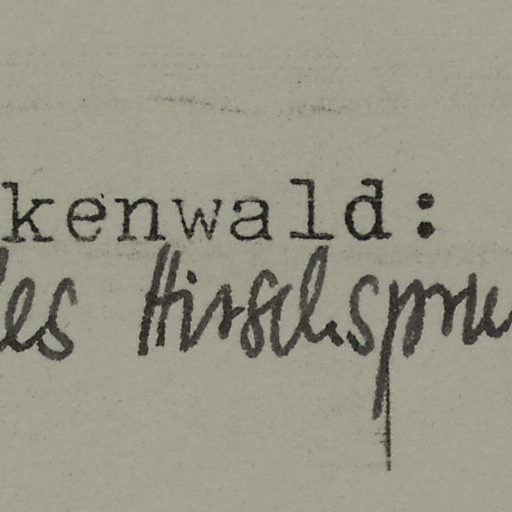 kenwald:
les Hirschspru